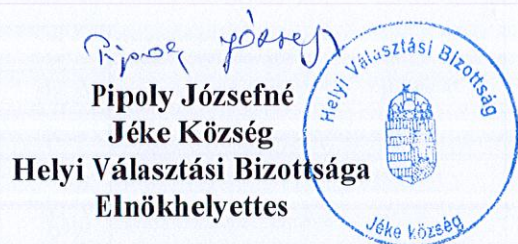 Pipoly Józsefné
Pipoly Józsefné
Jéke Község
Helyi Választási Bizottsága
Elnökhelyettes
Helyi Választási Bizottság
Jéke község